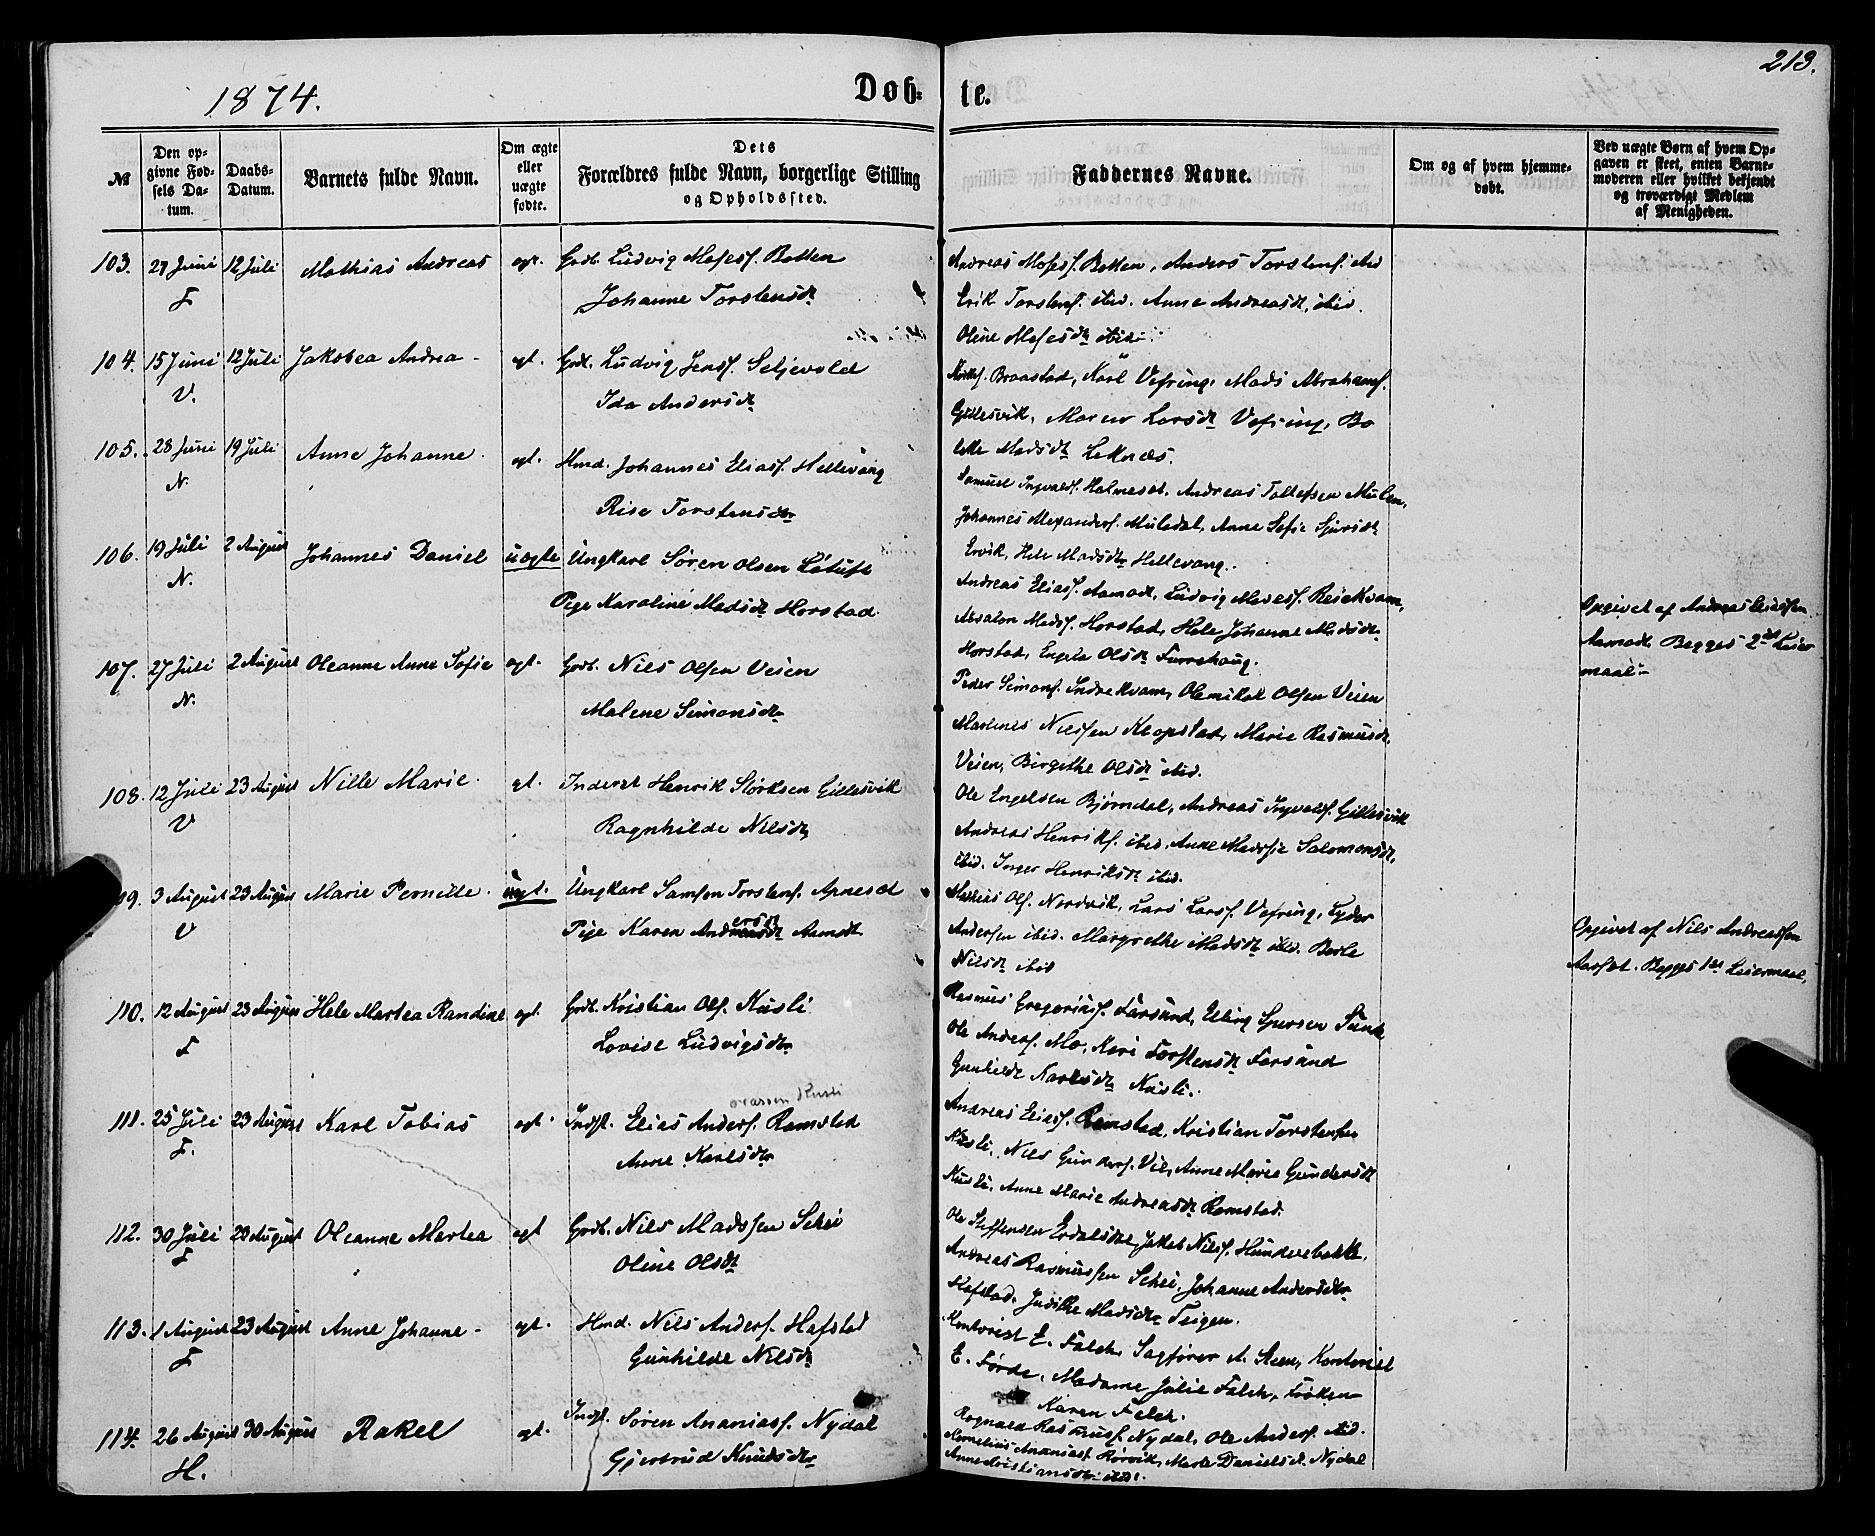 1874.
Døb-
te.
213.
№
Den opgivne Fødsels Datum.
Daabs-Datum.
Barnets fulde Navn.
Om ægte eller uægte fødte.
Dets Forældres fulde Navn, borgerlige Stilling og Opholdssted.
Faddernes Navne.
Om og af hvem hjemmedøbt.
Ved uægte Børn af hvem Opgaven er skeet, enten Barnemoderen eller hvilket bekjendt og troværdigt Medlem af Menigheden.
103. 27 Juni 12 Juli Mathias Andreas egt. Grdb. Ludvig Mosess. Botten
F Johanne Torstensdt
Andreas Mosess. Botten, Anders Torstens. ibid
Erik Torstens. ibid. Anne Andreasdt, ibid.
Oline Mosesdt ibid.
104. 15 Juni 12 Juli Jakobea Andrea - egt. Grdb. Ludvig Jenss. Seljevold
V. Ida Andersdt
Braastad, Karl Vefring, Mads Abrahams.
Gillesvik, Maren Larsdt Vefring, Bo
lette Madsdt Leknes.
105. 28 Juni 19 Juli Anne Johanne. egt. Hmd. Johannes Eliass. Hellevang
N. Rise Torstensdtr
Samuel Ingvalds. Holmeset, Andreas Tollefsen Mulen,
Johannes Alexanders. Muledal, Anne Sofie Sjursdt
Ervik, Hele Madsdtr Hellevang.
106. 19 Juli 2 August Johannes Daniel uægte Ungkarl Søren Olsen Løtuft
N. Pige Karoline Madsdt Horstad.
Andreas Eliass. Aamodt, Ludvig Reiekvam,
Absalon Madss. Horstad, Hele Johanne Madsdt
Horstad, Engele Olsdt Furrehaug.
Opgivet af Andreas Eliassen
Aamodt. Begges 2det Leier
maal -
107. 27 Juli 2 August Oleanne Anne Sofie egt. Grdb. Nils Olsen Veien
N. Malene Simonsdtr
Peder Simons. Indrekvam, Ole Mikal Olsen Veien
Martines Nilssen Klopstad, Marie Rasmusdt,
Veien, Birgithe Olsdt ibid.
108. 12 Juli 23 August Nille Marie. egt. Inderst Henrik Størksen Gillesvik
V Ragnhilde Nilsdt
Ole Engelsen Bjørndal, Andreas Ingvalds. Gillesvik
Andreas Henriks. ibid, Anne Madsie Salomonsdt,
ibid. Inger Henriksdt ibid.
109. 3 August 23 August Marie Pernille. uegt. Ungkarl Samson Torstens. Apneset
V Pige Karen Andersdt Aamot
Mathias Ols. Nordvik, Lars Larss. Vefring, Lyder
Andersen ibid. Margrethe Madsdt ibid. Berte
Nilsdt ibid
Opgivet af Nils Andreassen
Aasset. Begges 1ste Leiermaal.
110. 12 August 23 August Hele Martea Randine egt. Grdb. Kristian Ols. Kusli
F Lovise Ludvigsdtr
Rasmus Gregorius. Farsund, Elling Sjursen Sunde
Ole Anders. Mo, Kari Torstensdt Farsund
Gunhilde Karlsdt Kusli.
111. 25 Juli 23 August Karl Tobias egt. Indst. Elias Anders. Ramstad
F. Anne Karlsdtr
Andreas Eliass. Ramstad, Kristian Torstensen
Kusli, Nils Gunders. Vie, Anne Marie Gundersdt
Kusli, Anne Marie Andreasdt Ramstad.
112. 30 Juli 23 August Oleanne Martea egt Grdb. Nils Madssen Schei
F Oline Olsdt
Ole Steffensen Erdalsdal, Jakob Nilss. Hundvebakke,
Andreas Rasmussen Schei, Johanne Andersdtr
Hafstad, Judithe Madsdtr Teigen.
113. 1 August 23 August Anne Johanne - egt. Hmd. Nils Anders. Hafstad
F Gunhilde Nilsdt
Kontorist E. Falch, Sagfører A. Steen, Kontorist
E. Førde, Madame Julie Falch, Frøken
Karen Falch.
114. 26 August 30 August Rakel egt. Indst. Søren Ananiass. Nydal
H. Gjertrud Knudsdtr
Ragnald Rasmuss. Nydal, Ole Anders. ibid.
Kornelius Ananiass. Rørvik, Marte Danielsd. Nydal
Anne Kristiansdtr ibid.